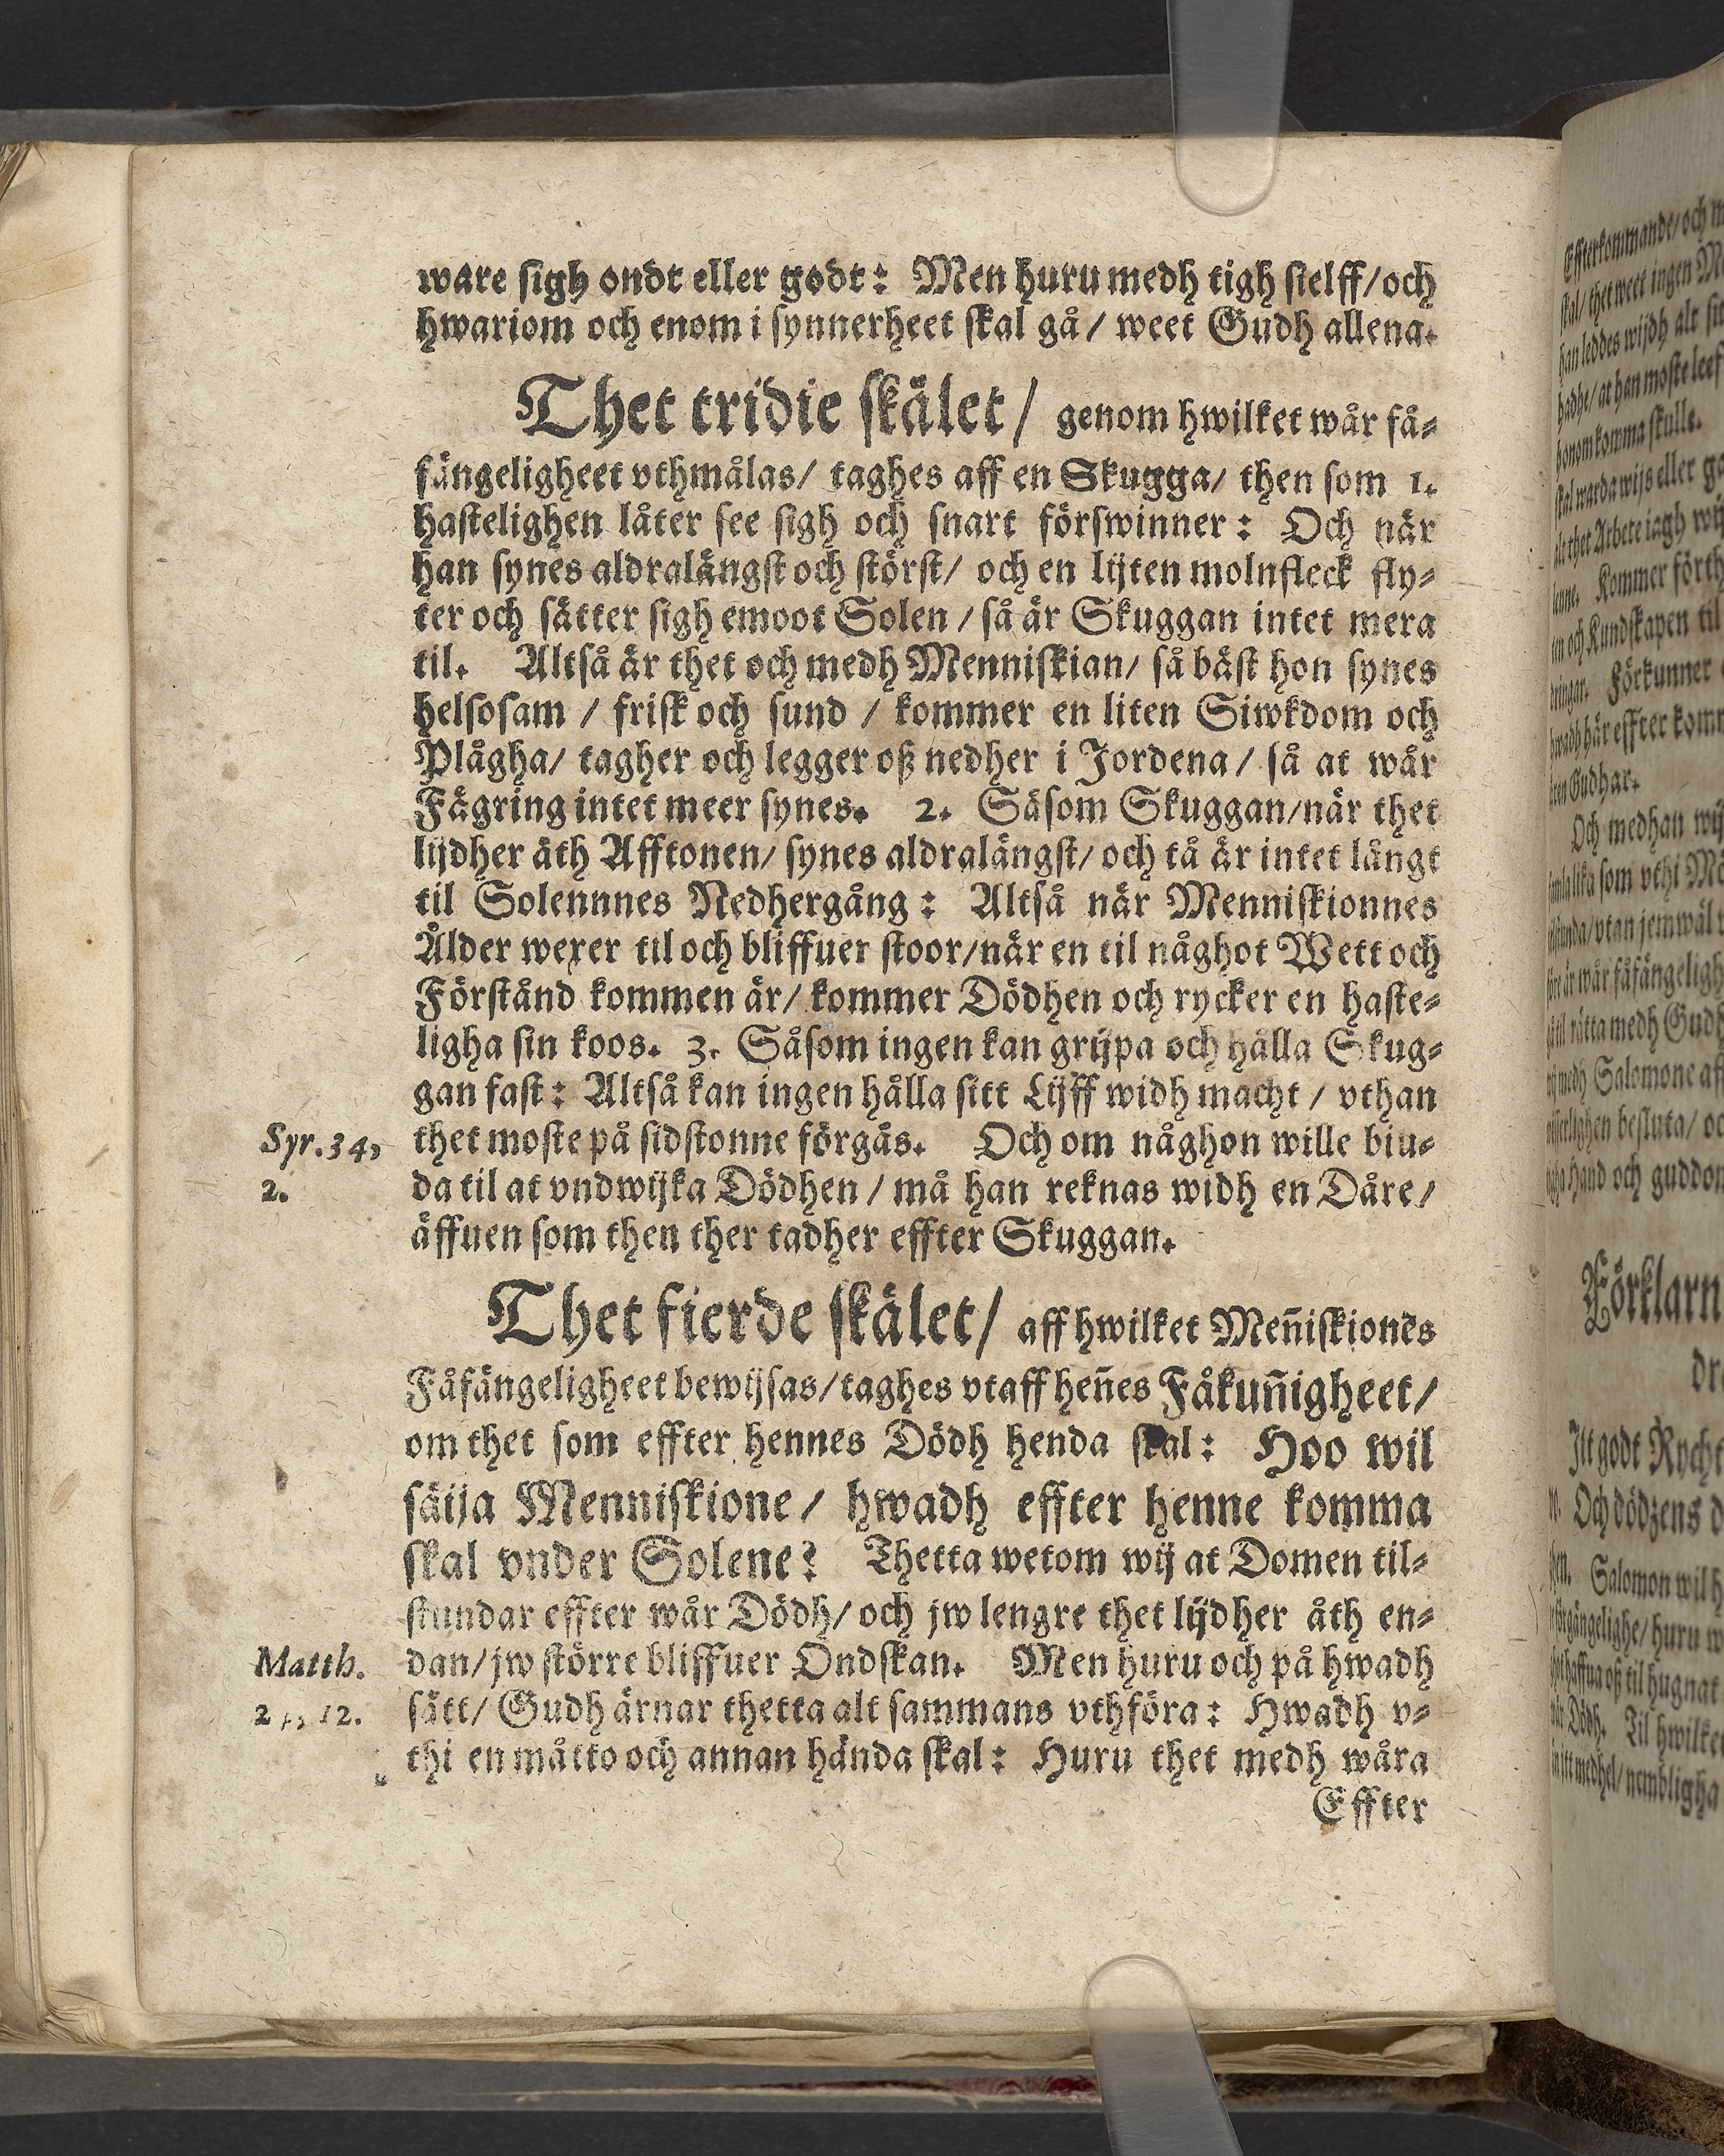 ware sigh ondt eller godt: Men huru medh tigh sielff/och
hwariom och enom i synnerheet skal gå/ weet Gudh allena.
Thet tridie skälet/ genom hwilket wår få-
fängeligheet vthmålas/ taghes aff en Skugga/ then som 1.
hastelighen låter see sigh och snart förswinner: Och när
han synes aldralängst och störst/ och en lijten molnfleck fly-
ter och sätter sigh emoot Solen / så är Skuggan intet mera
til. Altså är thet och medh Menniskian/ så bäst hon synes
helsosam / frisk och sund / kommer en liten Siwkdom och
Plågha/ tagher och legger oß nedher i Jordena/ så at wår
Fägring intet meer synes. 2. Såsom Skuggan/när thet
lijdher åth Afftonen/ synes aldralängst/ och tå är intet långt
til Solennnes Nedhergång: Altså när Menniskionnes
Ålder wexer til och bliffuer stoor/när en til någhot Wett och
Förstånd kommen är/ kommer Dödhen och rycker en haste-
ligha sin koos. 3. Såsom ingen kan grijpa och hålla Skug-
gan fast: Altså kan ingen hålla sitt Lijff widh macht / vthan
Syr. 34, thet moste på sidstonne förgås. Och om någhon wille biu-
2. da til at vndwijka Dödhen / må han reknas widh en Dåre/
äffuen som then ther tadher effter Skuggan.
Thet fierde skälet/ aff hwilket Meñiskiones
Fåfängeligheet bewijsas/taghes vtaff heñes Fåkuñigheet/
om thet som effter hennes Dödh henda skal: Hoo wil
säija Menniskione/ hwadh effter henne komma
skal vnder Solene? Thetta wetom wij at Domen til-
stundar effter wår Dödh/ och jw lengre thet lijdher åth en-
Matth. dan/jw större bliffuer Ondskan. Men huru och på hwadh
12. sätt/ Gudh ärnar thetta alt sammans vthföra: Hwadh v-
thi en måtto och annan hända skal: Huru thet medh wåra
Effter